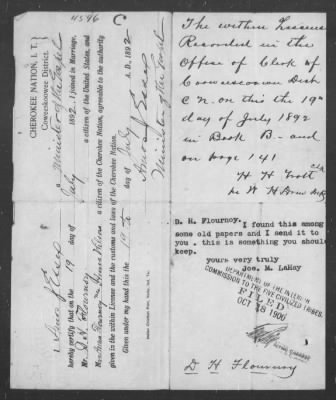 4596
C
CHEROKEE NATION, I. T.
Cowerskoowee District.
I Amos J Essex
a Minister of the Gospel
hereby certify that on the 19 day of July 1892, I joined in Marriage,
Mr. D H Flournoy a citizen of the United States, and
a citizen of the Cherokee Nation, agreeable to the authority
given in the within License and the customs and laws of the Cherokee Nation.
Given under my hand this the 19th day of July A. D., 1892
Amos J Essex
Minister of the Gospel
The within License
Recorded in the
Office of Clerk of
Coowescoowee Dist
C. N. on this the 19th
day of July 1892
in Book B- and
on page 141
H H Trott
D. H. Flournoy.
I found this among
some old papers and I send it to
you . this is something you should
keep.
yours very truly
Jos. M. LaHay
DEPARTMENT OF THE INTERIOR
COMMISSION TO THE FIVE CIVILIZED TRIBES.
FILED
OCT 18 1900
D H Flournoy